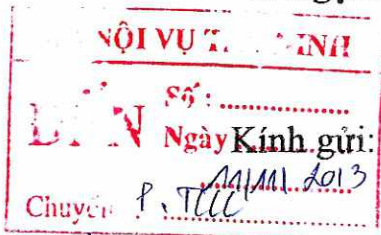 NỘI VỤ
ĐẾN
Số:
Ngày
Kính gửi:
11/11/2013
Chuyển P.